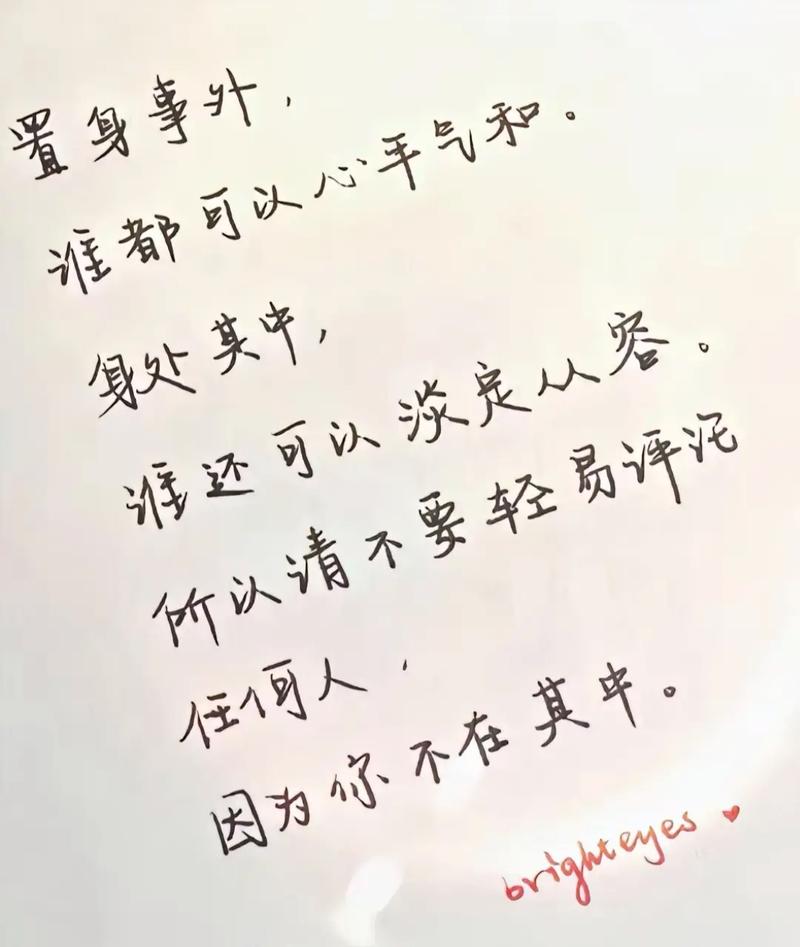 置身事外，
谁都可以心平气和。
身处其中，
谁还可以淡定从容。
所以请不要轻易评论
任何人，
因为你不在其中。
brighteyes ♥